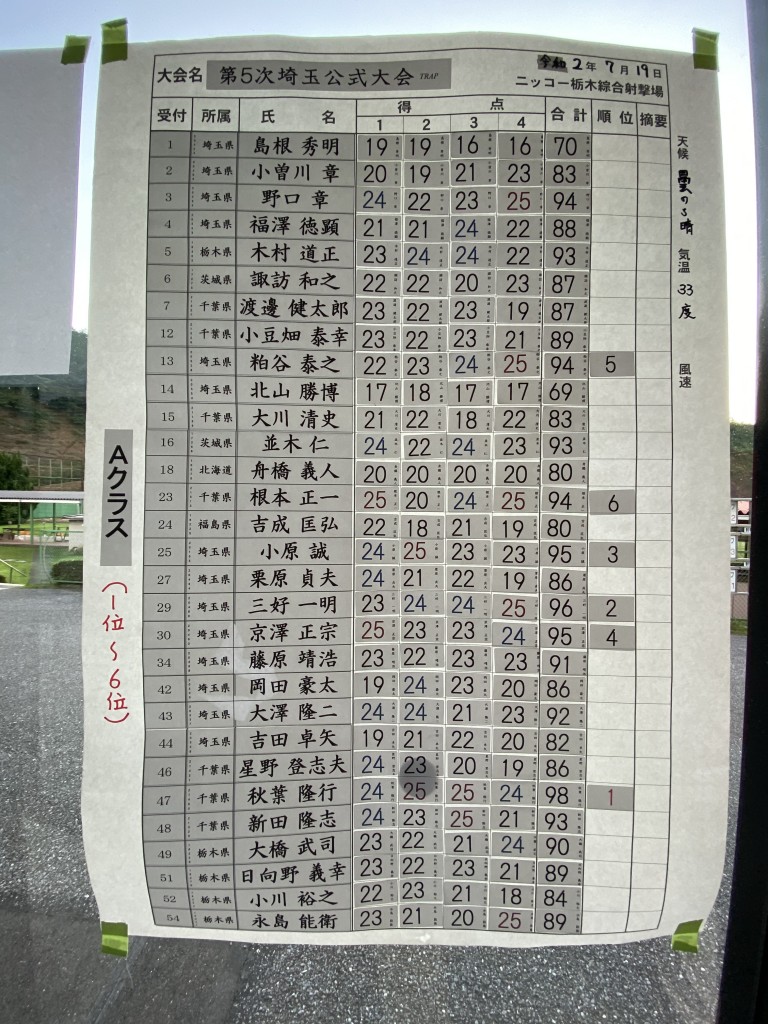 大会名 第5次埼玉公式大会 TRAP 令和2年7月19日
ニッコー栃木綜合射撃場
受付 所属 氏名 得点 合計 順位 摘要
1 2 3 4
1 埼玉県 島根 秀明 19 19 16 16 70
2 埼玉県 小曽川 章 20 19 21 23 83
3 埼玉県 野口 章 24 22 23 25 94
4 埼玉県 福澤 徳顕 21 21 24 22 88
5 栃木県 木村 道正 23 24 24 22 93
6 茨城県 諏訪 和之 22 22 20 23 87
7 千葉県 渡邊 健太郎 23 22 23 19 87
12 千葉県 小豆畑 泰幸 23 22 23 21 89
13 埼玉県 粕谷 泰之 22 23 24 25 94 5
14 埼玉県 北山 勝博 17 18 17 17 69
15 千葉県 大川 清史 21 22 18 22 83
16 茨城県 並木 仁 24 22 24 23 93
18 北海道 舟橋 義人 20 20 20 20 80
23 千葉県 根本 正一 25 20 24 25 94 6
24 福島県 吉成 匡弘 22 18 21 19 80
25 埼玉県 小原 誠 24 25 23 23 95 3
27 埼玉県 栗原 貞夫 24 21 22 19 86
29 埼玉県 三好 一明 23 24 24 25 96 2
30 埼玉県 京澤 正宗 25 23 23 24 95 4
34 埼玉県 藤原 靖浩 23 22 23 23 91
42 埼玉県 岡田 豪太 19 24 23 20 86
43 埼玉県 大澤 隆二 24 24 21 23 92
44 埼玉県 吉田 卓矢 19 21 22 20 82
46 千葉県 星野 登志夫 24 23 20 19 86
47 千葉県 秋葉 隆行 24 25 25 24 98 1
48 千葉県 新田 隆志 24 23 25 21 93
49 栃木県 大橋 武司 23 22 21 24 90
51 栃木県 日向野 義幸 23 22 23 21 89
52 栃木県 小川 裕之 22 23 21 18 84
54 栃木県 永島 能衛 23 21 20 25 89
天候 曇のち晴 気温 33度 風速
Aクラス
(1位〜6位)